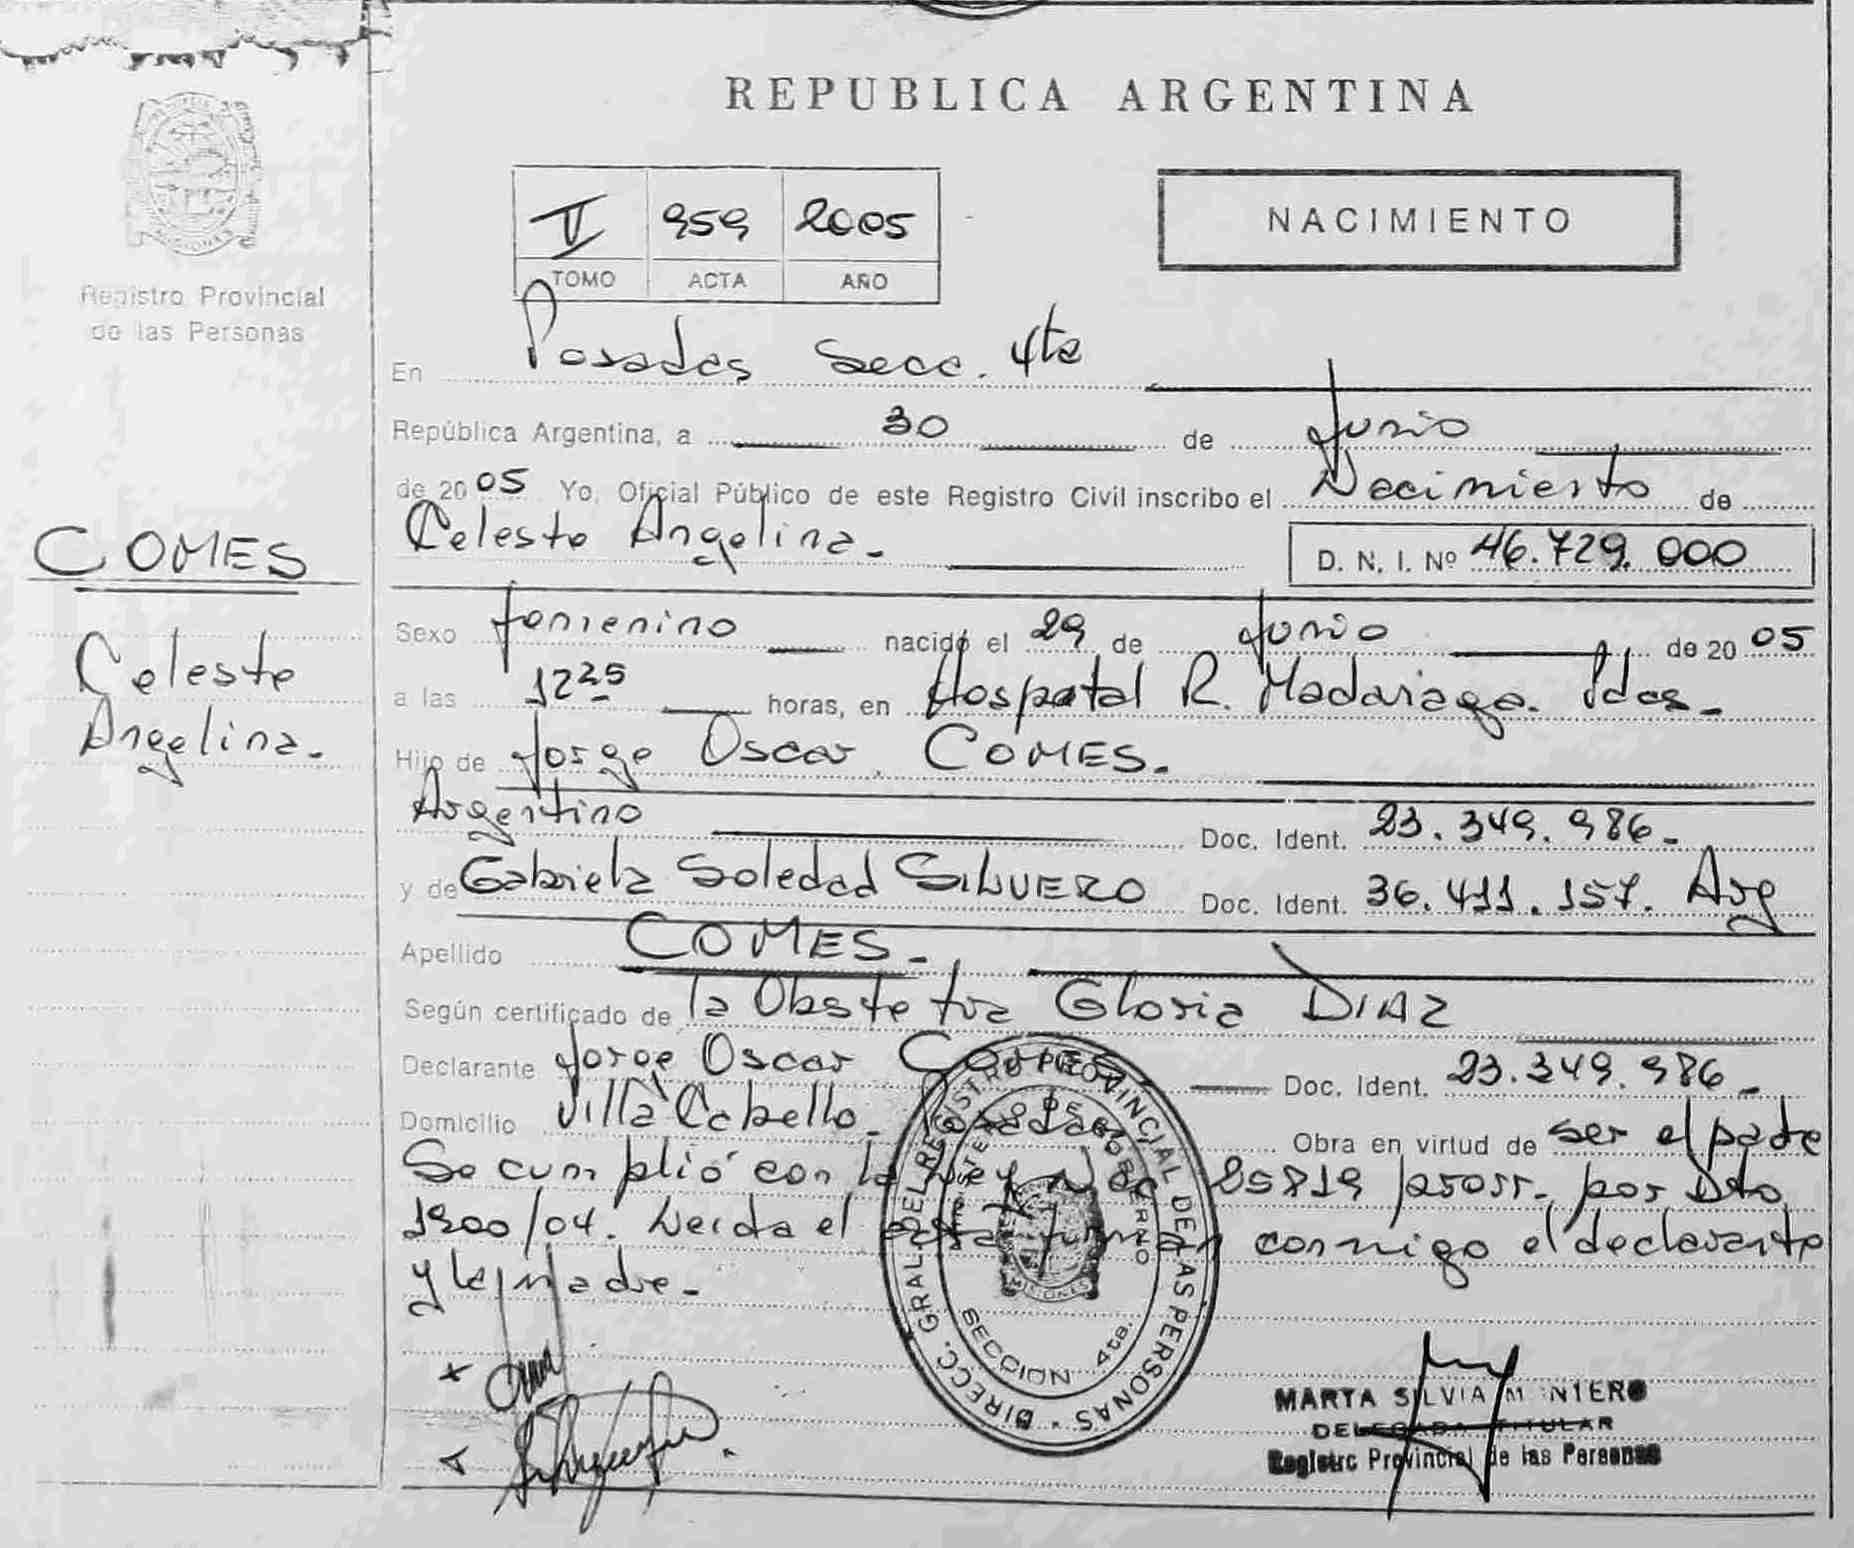 REPUBLICA ARGENTINA
Registro Provincial
de las Personas
COMES
Celeste
Angelina.
V 959 2005
TOMO ACTA AÑO
NACIMIENTO
En Posadas Secc. 4ta
República Argentina, a 30 de Junio
de 2005 Yo, Oficial Público de este Registro Civil inscribo el Nacimiento de
Celeste Angelina. D. N. I. Nº 46.729.000
Sexo femenino nacido el 29 de Junio de 2005
a las 12 25 horas, en Hospital R. Madariaga. Pdas.
Hijo de Jorge Oscar COMES.
Argentino Doc. Ident. 23.349.986.
y de Gabriela Soledad SILVERO Doc. Ident. 36.411.157. Arg
Apellido COMES.
Según certificado de la Obstetra Gloria DIAZ
Declarante Jorge Oscar COMES Doc. Ident. 23.349.986.
Domicilio Villa Cabello. Posadas Obra en virtud de ser el padre
Se cumplió con la Ley N 25819 prorr. por Dto
1900/04. Leida el acta firman conmigo el declarante
y la madre.
DIRECC. GRAL. DEL REGISTRO PROVINCIAL DE LAS PERSONAS
DE GOBIERNO
MISIONES
SECCION 4ta.
MARTA SILVIA
DELEGADA TITULAR
Registro Provincial de las Personas